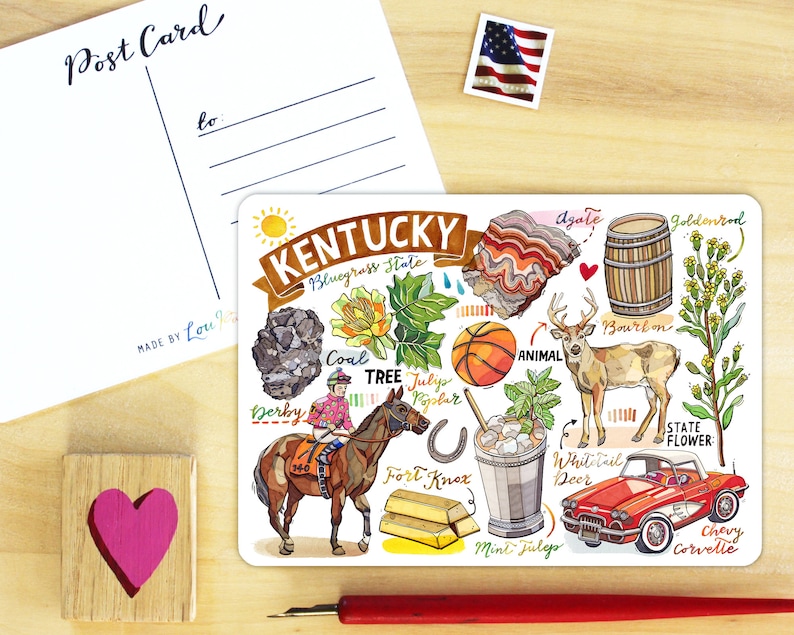 Post Card
to:
MADE BY Lou
KENTUCKY
Bluegrass State
Agate
Goldenrod
Bourbon
Coal
TREE Tulip
Poplar
ANIMAL
Derby
140
STATE
FLOWER:
Whitetail
Deer
Fort Knox
Mint Julep
Chevy
Corvette